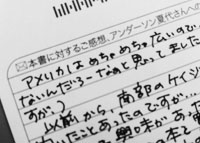 本書に対するご感想、アンダーソン夏代さんへの
アメリカはめちゃめちゃ広いので
なんだろーなぁと思ってました
すが?
以前から、南部のケイジ
たことあったのですが…
興味があっ
本と